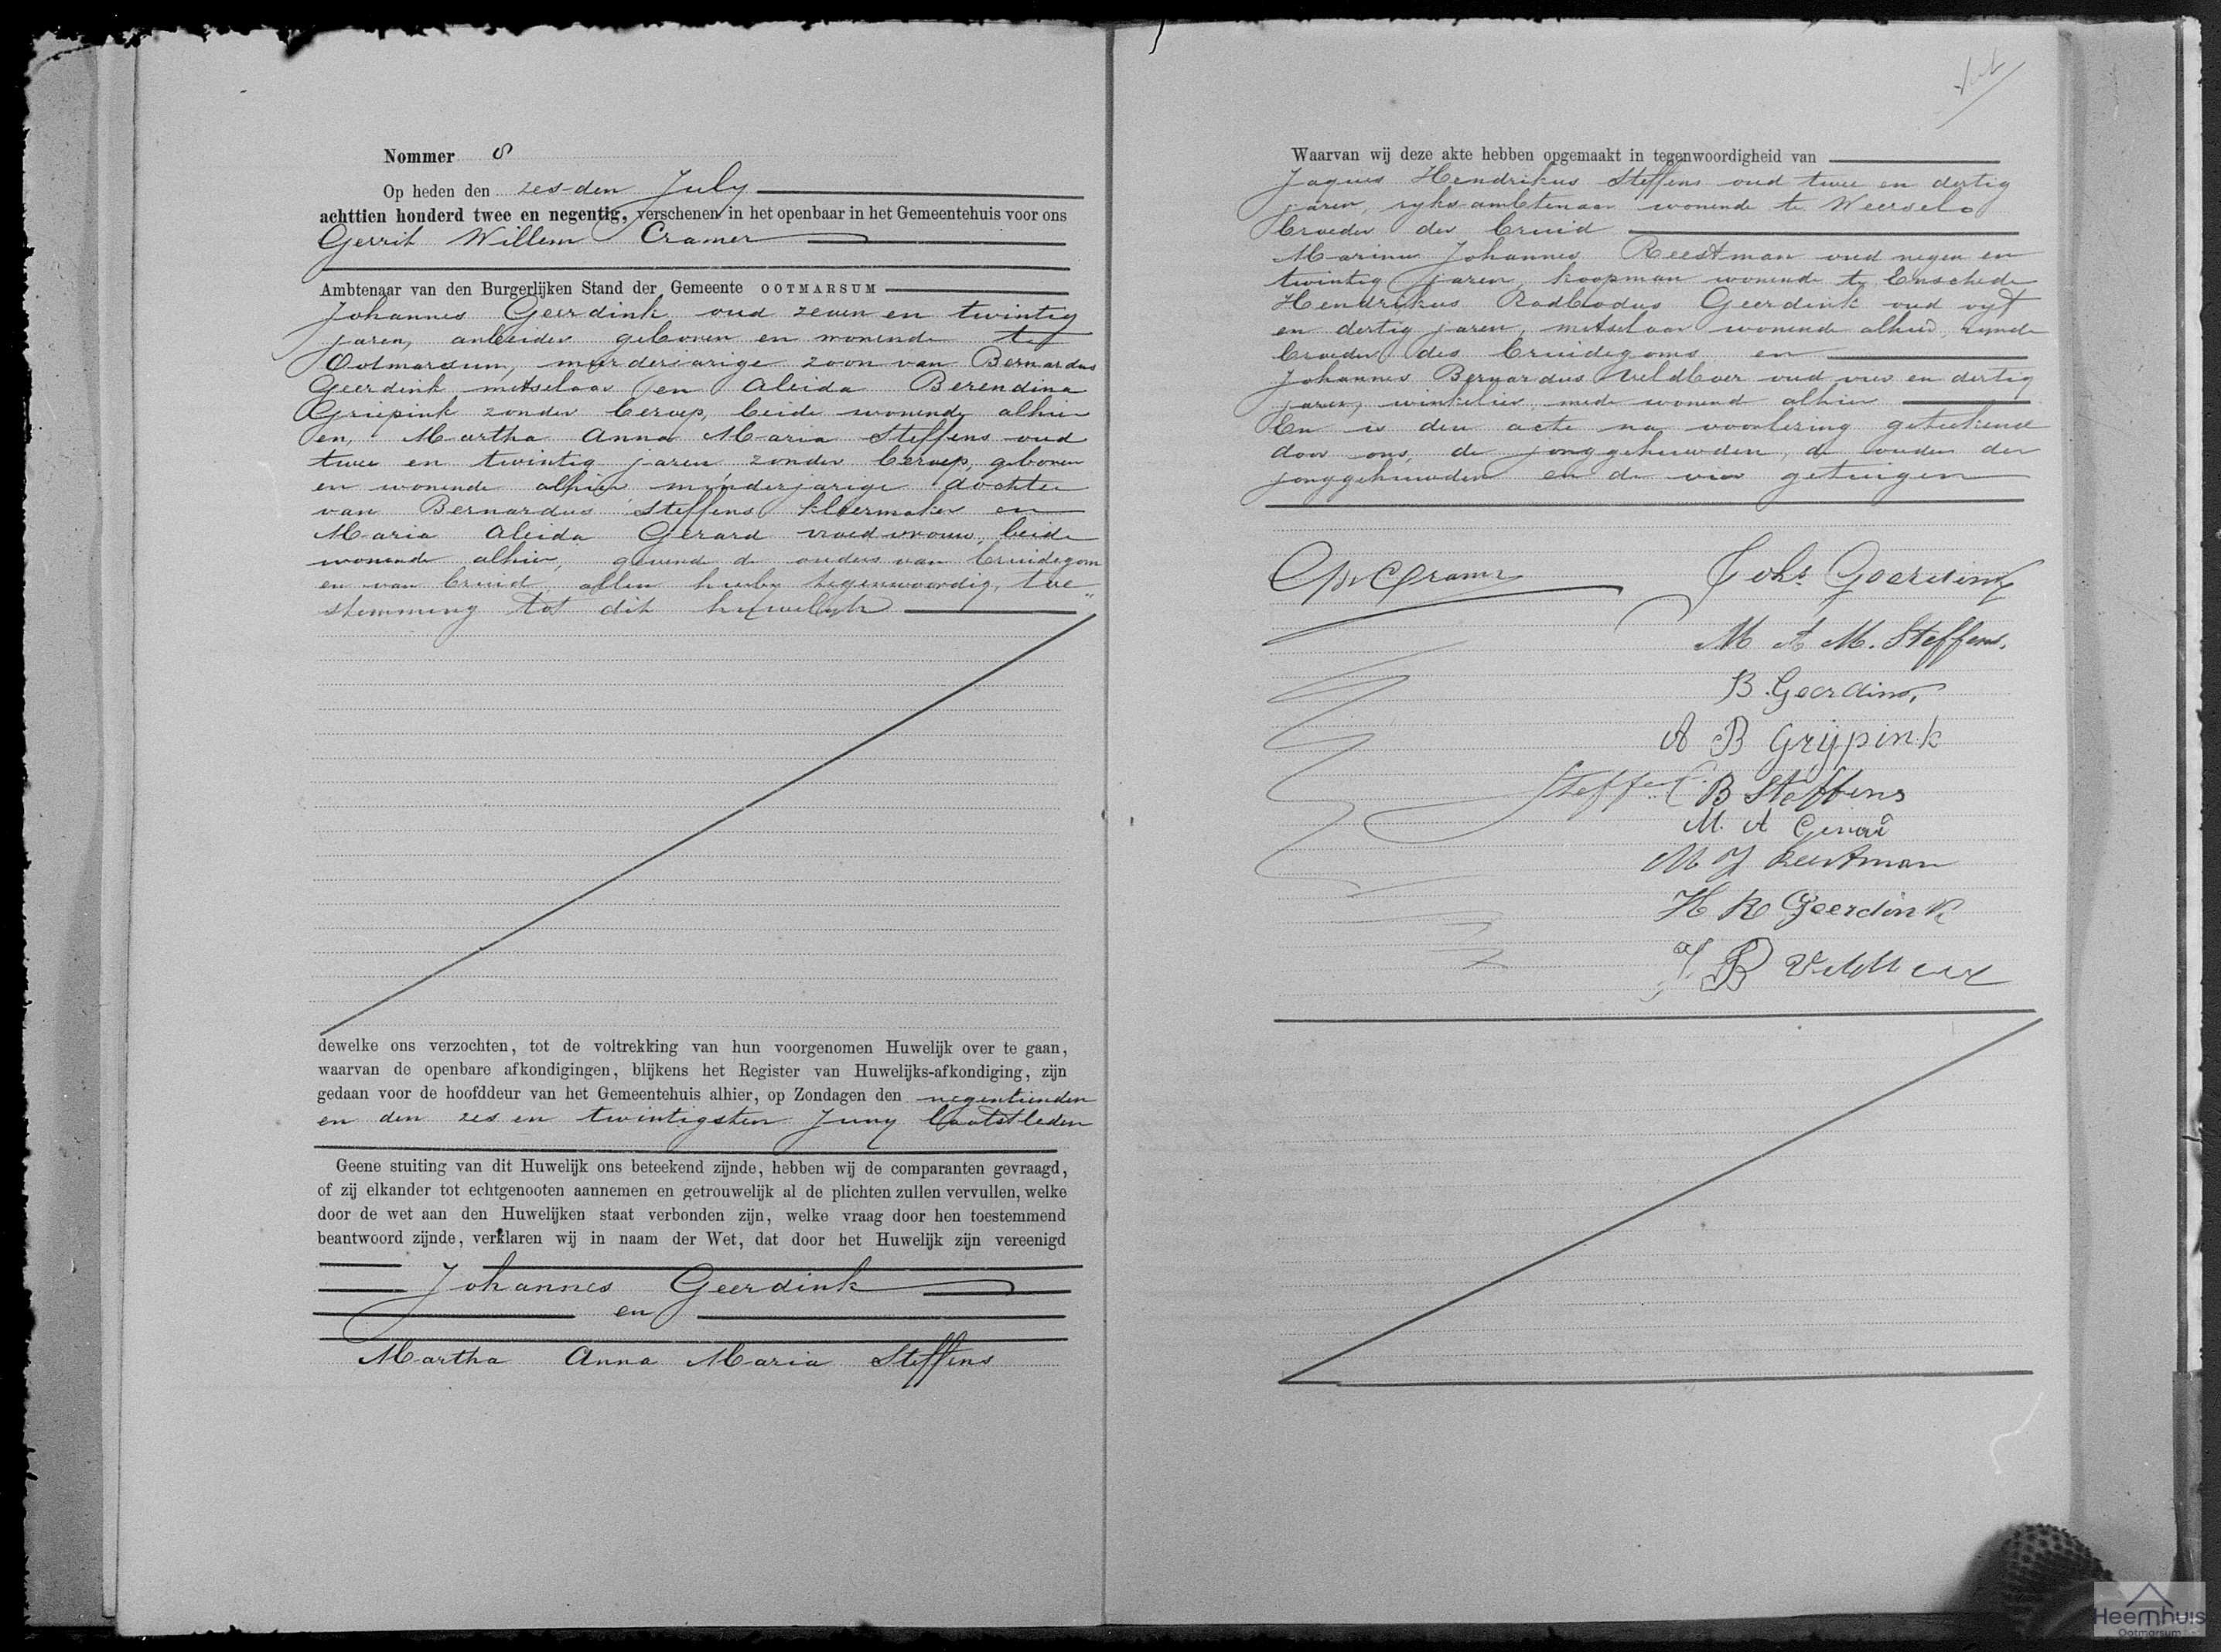 Nommer 8
Op heden den zesden July
achttien honderd twee en negentig, verschenen in het openbaar in het Gemeentehuis voor ons
Gerrit Willem Cramer
Ambtenaar van den Burgerlijken Stand der Gemeente OOTMARSUM
Johannes Geerdink oud zeven en twintig
jaren, arbeider geboren en wonende te
Ootmarsum, meerderjarige zoon van Bernardus
Geerdink metselaar en Aleida Berendina
Griepink zonder beroep, beide wonende alhier
en, Martha Anna Maria Steffens oud
twee en twintig jaren zonder beroep, geboren
en wonende alhier minderjarige dochter
van Bernardus Steffens kleermaker en
Maria Aleida Gerard vroedvrouw, beide
wonende alhier, gevende de ouders van bruidegom
en van bruid, allen hierby tegenwoordig, toe"
stemming tot dit huwelyk
dewelke ons verzochten, tot de voltrekking van hun voorgenomen Huwelijk over te gaan,
waarvan de openbare afkondigingen, blijkens het Register van Huwelijks-afkondiging, zijn
gedaan voor de hoofddeur van het Gemeentehuis alhier, op Zondagen den negentienden
en den zes en twintigsten Juny laatstleden
Geene stuiting van dit Huwelijk ons beteekend zijnde, hebben wij de comparanten gevraagd,
of zij elkander tot echtgenooten aannemen en getrouwelijk al de plichten zullen vervullen, welke
door de wet aan den Huwelijken staat verbonden zijn, welke vraag door hen toestemmend
beantwoord zijnde, verklaren wij in naam der Wet, dat door het Huwelijk zijn vereenigd
Johannes Geerdink
en
Martha Anna Maria Steffens
Waarvan wij deze akte hebben opgemaakt in tegenwoordigheid van
Jaques Hendrikus Steffens oud twee en dertig
jaren, ryksambtenaar wonende te Weerselo
broeder der bruid
Marinus Johannes Reestman oud negen en
twintig jaren, koopman wonende te Enschede
Hendrikus Radbodus Geerdink oud vyf
en dertig jaren, metselaar wonende alhier, zynde
broeder des bruidegoms en
Johannes Bernardus Veldboer oud vier en dertig
jaren, winkelier, mede wonend alhier
En is deze acte na voorlezing geteekend
door ons, de jonggehuwden, de ouders der
jonggehuwden en de vier getuigen
GWCramer
Johs Geerdink
M A M. Steffens.
B Geerdink
A B Grijpink
Steffens
B Steffens
M. A Gerard
M J Reestman
H R Geerdink
J B Veldboer
Heernhuis
Ootmarsum